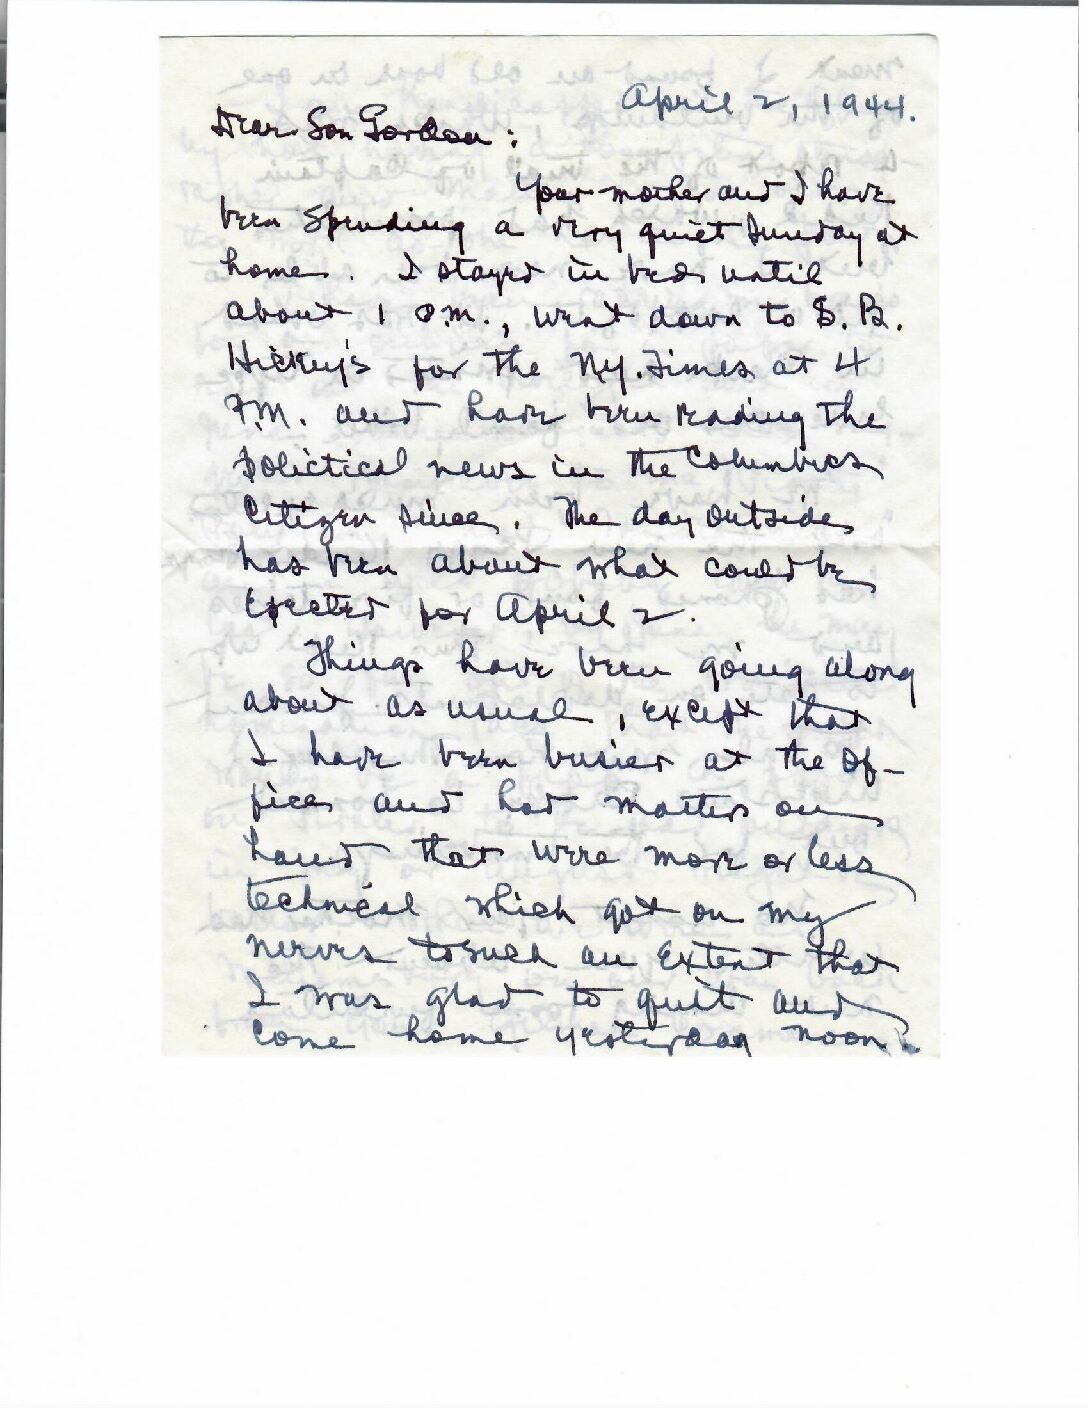 April 2, 1944.
Dear Son Gordon:
Your mother and I have
been spending a very quiet Sunday at
home. I stayed in bed until
about 1 P.M., went down to S. B.
Hickey's for the N.Y. Times at 4
P.M. and have been reading the
polictical news in the Columbus
Citizen since. The day outside
has been about what could be
expected for April 2.
Things have been going along
about as usual, except that
I have been busier at the of-
fice and had matters on
hand that were more or less
technical which got on my
nerves to such an extent that
I was glad to quit and
come home yesterday noon.